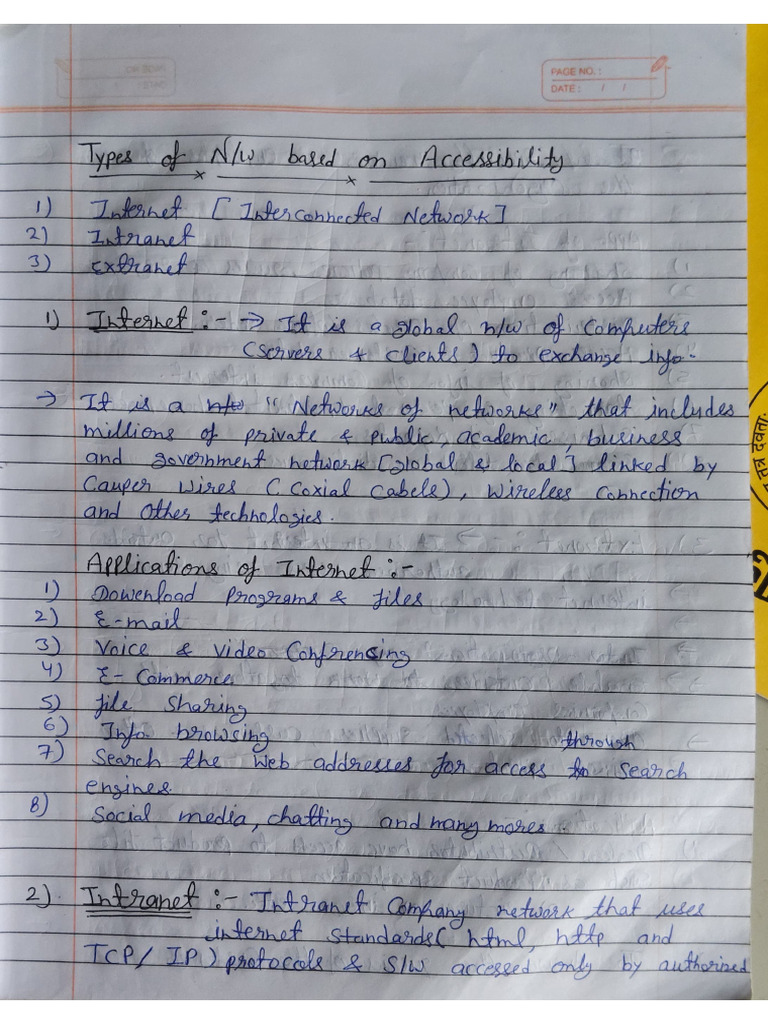 PAGE NO. :
DATE : / /
Types of N/w based on Accessibility
1) Internet [ Interconnected Network ]
2) Intranet
3) Extranet
1) Internet :- → It is a global n/w of Computers
(servers & clients) to exchange info.
→ It is a n/w "Networks of networks" that includes
millions of private & public, academic, business
and government network [global & local] linked by
Cauper Wires (Coxial Cabels), Wireless Connection
and Other technologies.
Applications of Internet :-
1) Dowenload Programs & files
2) E-mail
3) Voice & Video Confrencing
4) E-Commerce
5) file Sharing
6) Info. browsing
7) Search the Web addresses for access through Search
engines.
8) Social media, chatting and many mores.
2). Intranet :- Intranet Company network that uses
internet Standards( html, http and
TCP/ IP) protocols & S/W accessed only by authorized
तत्र देवता: